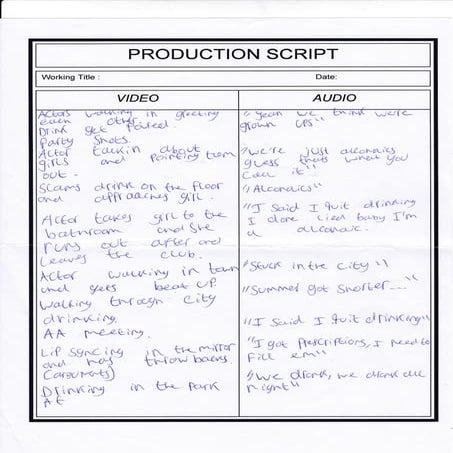 PRODUCTION SCRIPT
Working Title :
Date:
VIDEO
Actors walking in greeting
each other.
Drink get poured.
Party shots.
Actor talkin about
girls and pointing them
out.
drink on the floor
and approaches girl.
Actor takes girl to the
bathroom and she
runs out after and
leaves the club.
Actor walking in town
and gets beat up.
walking through city
drinking.
AA meeting.
Lip syncing in the mirror
and throwbacks.
(arguments)
Drinking in the park
At
AUDIO
"Yeah we think we're
grown ups"
"We're just alcoholics
guess thats what you
call it"
"Alcoholics"
"I said I quit drinking
I done lied baby I'm
a alcoholic.
"Stuck in the city"
"Summer got shorter..."
"I said I quit drinking"
"I got prescriptions, I need to
fill em"
"We drank, we drank all
night"